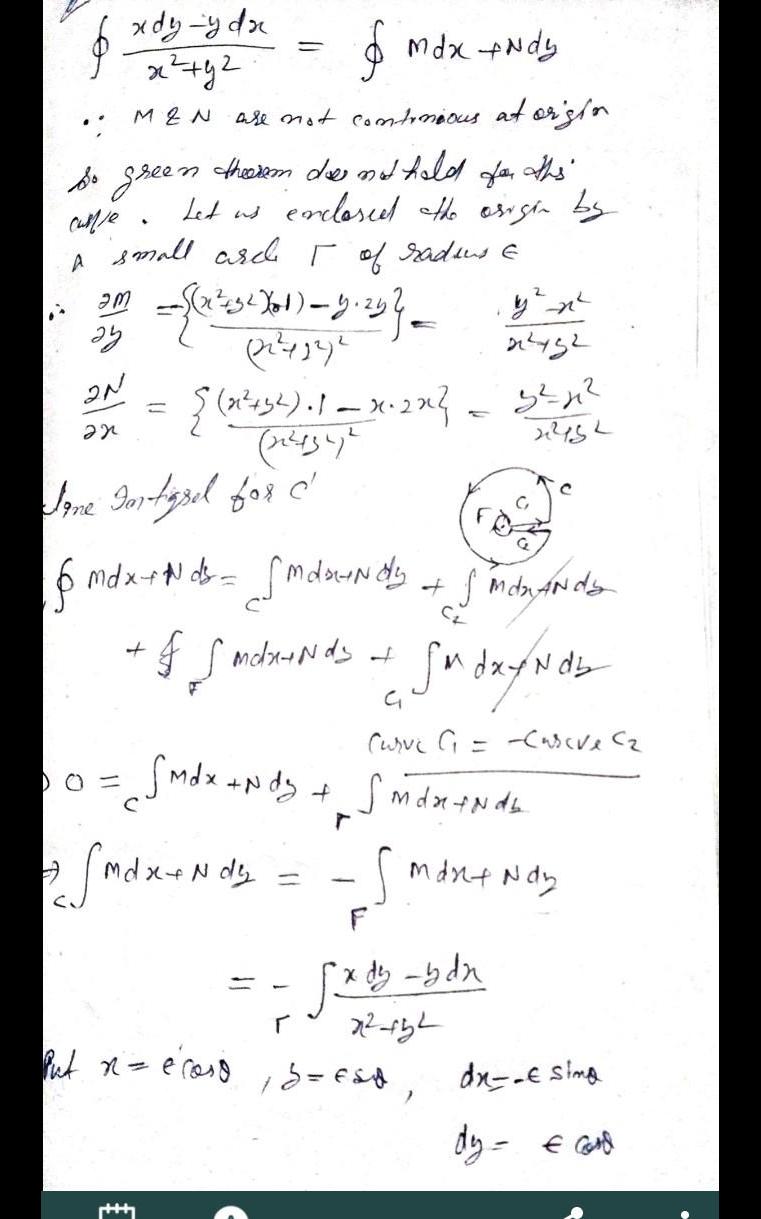 ∮ (xdy - ydx)/(x²+y²) = ∮ Mdx + Ndy
∵ M & N are not continuous at origin
So green theorem does not hold for this
curve. Let us enclosed the origin by
A small circle Γ of radius ϵ
∴ ∂M/∂y = -{(x²+y²)(1) - y·2y}/(x²+y²)² = (y²-x²)/(x²+y²
∂N/∂x = {(x²+y²)·1 - x·2x}/(x²+y²)² = (y²-x²)/(x²+y²
line Integral for C'
C
C₁
Γ
C₂
∮ Mdx + Ndy = ∫_C Mdx+Ndy + ∫_C₂ Mdx+Ndy
+ ∫_Γ Mdx+Ndy + ∫_C₁ Mdx+Ndy
Curve C₁ = -Curve C₂
0 = ∫_C Mdx+Ndy + ∫_Γ Mdx+Ndy
⇒ ∫_C Mdx+Ndy = - ∫_Γ Mdx+Ndy
= - ∫_Γ (xdy - ydx)/(x²+y²
Put x = ϵcosθ, y = ϵsθ, dx = -ϵ sinθ
dy = ϵ cosθ